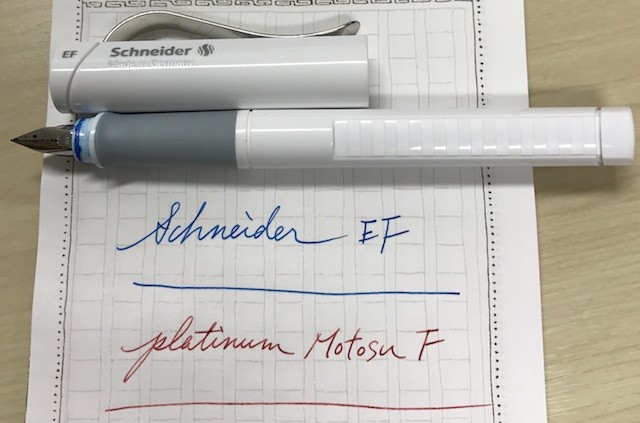 EF Schneider
Made in Germany
Schneider EF
platinum Motosu F